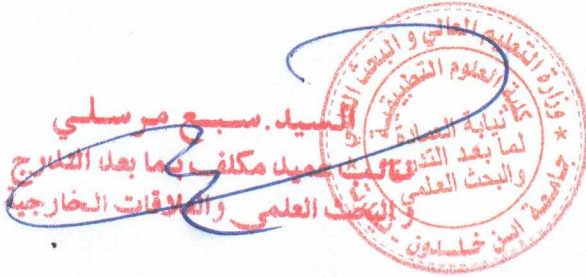 السيد. سبع مرسلي
نائب عميد مكلف بما بعد التدرج
و البحث العلمي والعلاقات الخارجية
وزارة التعليم العالي و البحث العلمي
جامعة ابن خلدون
كلية العلوم التطبيقية
نيابة العمادة
لما بعد التدرج
والبحث العلمي